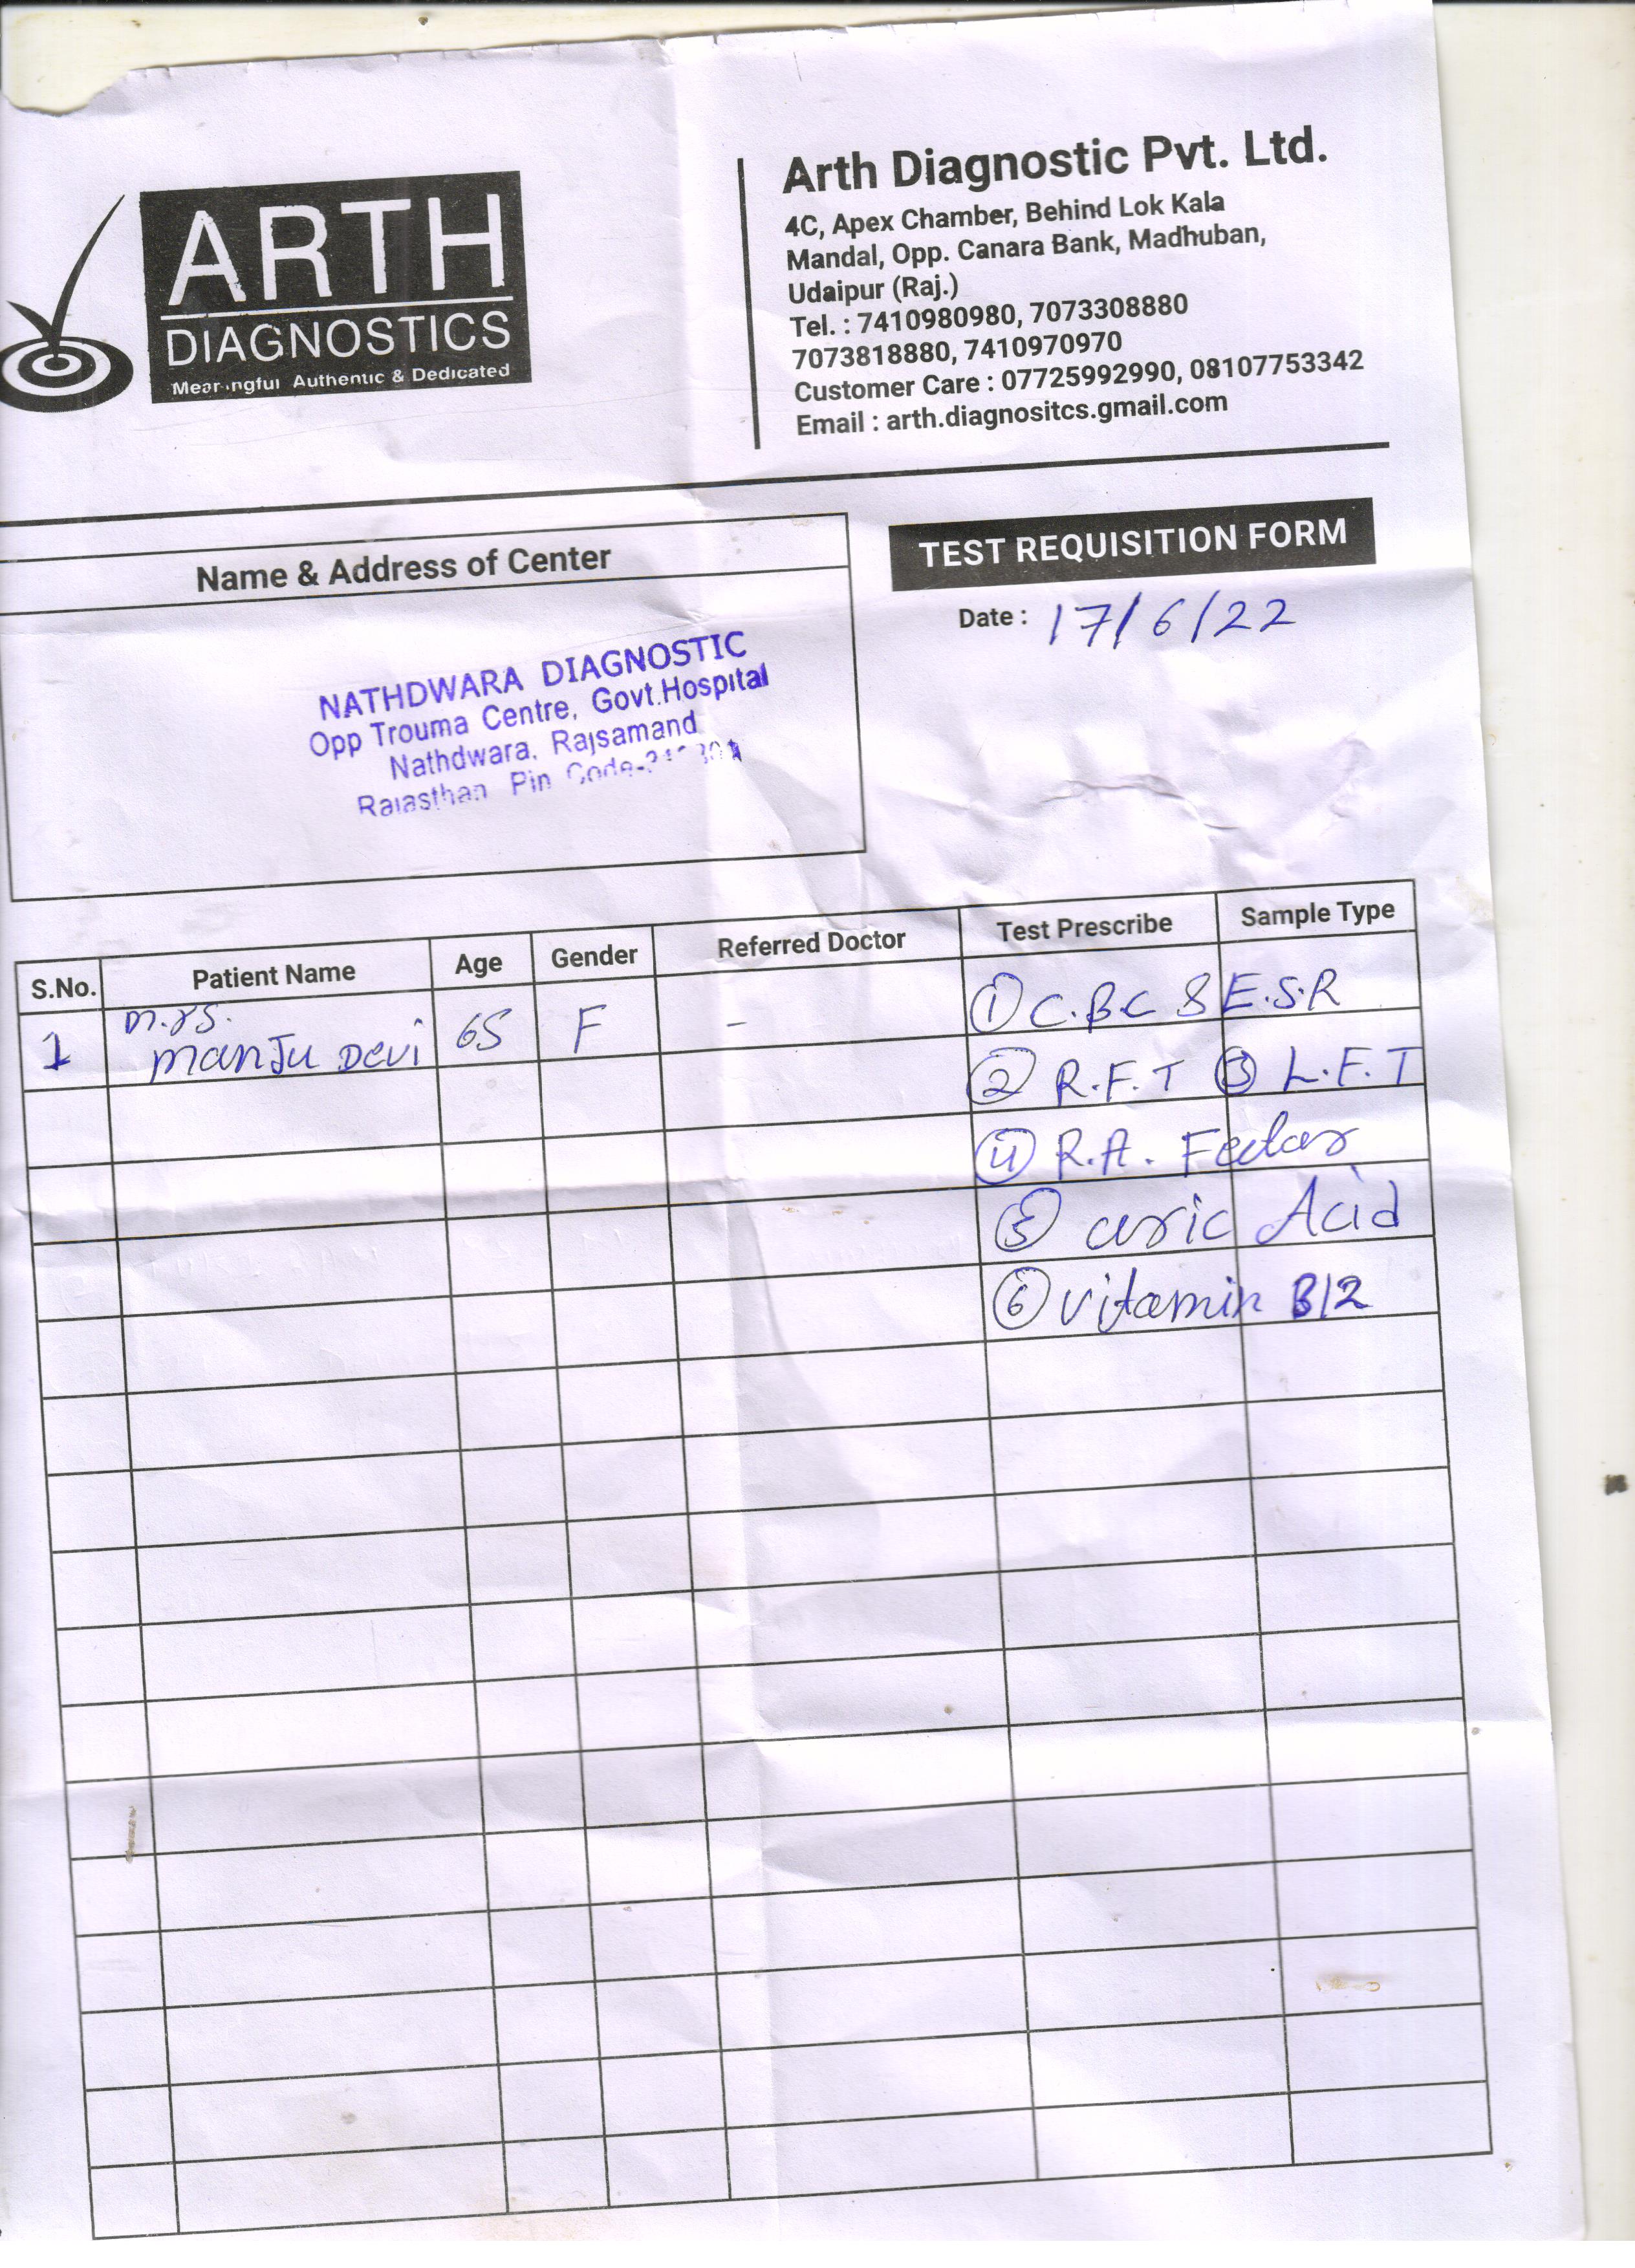 ARTH
DIAGNOSTICS
Meaningful Authentic & Dedicated
Arth Diagnostic Pvt. Ltd.
4C, Apex Chamber, Behind Lok Kala
Mandal, Opp. Canara Bank, Madhuban,
Udaipur (Raj.)
Tel. : 7410980980, 7073308880
7073818880, 7410970970
Customer Care : 07725992990, 08107753342
Email : arth.diagnositcs.gmail.com
Name & Address of Center
NATHDWARA DIAGNOSTIC
Opp Trouma Centre, Govt.Hospital
Nathdwara, Rajsamand
Rajasthan Pin Code-
TEST REQUISITION FORM
Date : 17/6/22
S.No. Patient Name Age Gender Referred Doctor Test Prescribe Sample Type
1 mrs. manju Devi 65 F - ① C.B.C & E.S.R
② R.F.T ③ L.F.T
④ R.A.
⑤ uric Acid
⑥ vitamin B12